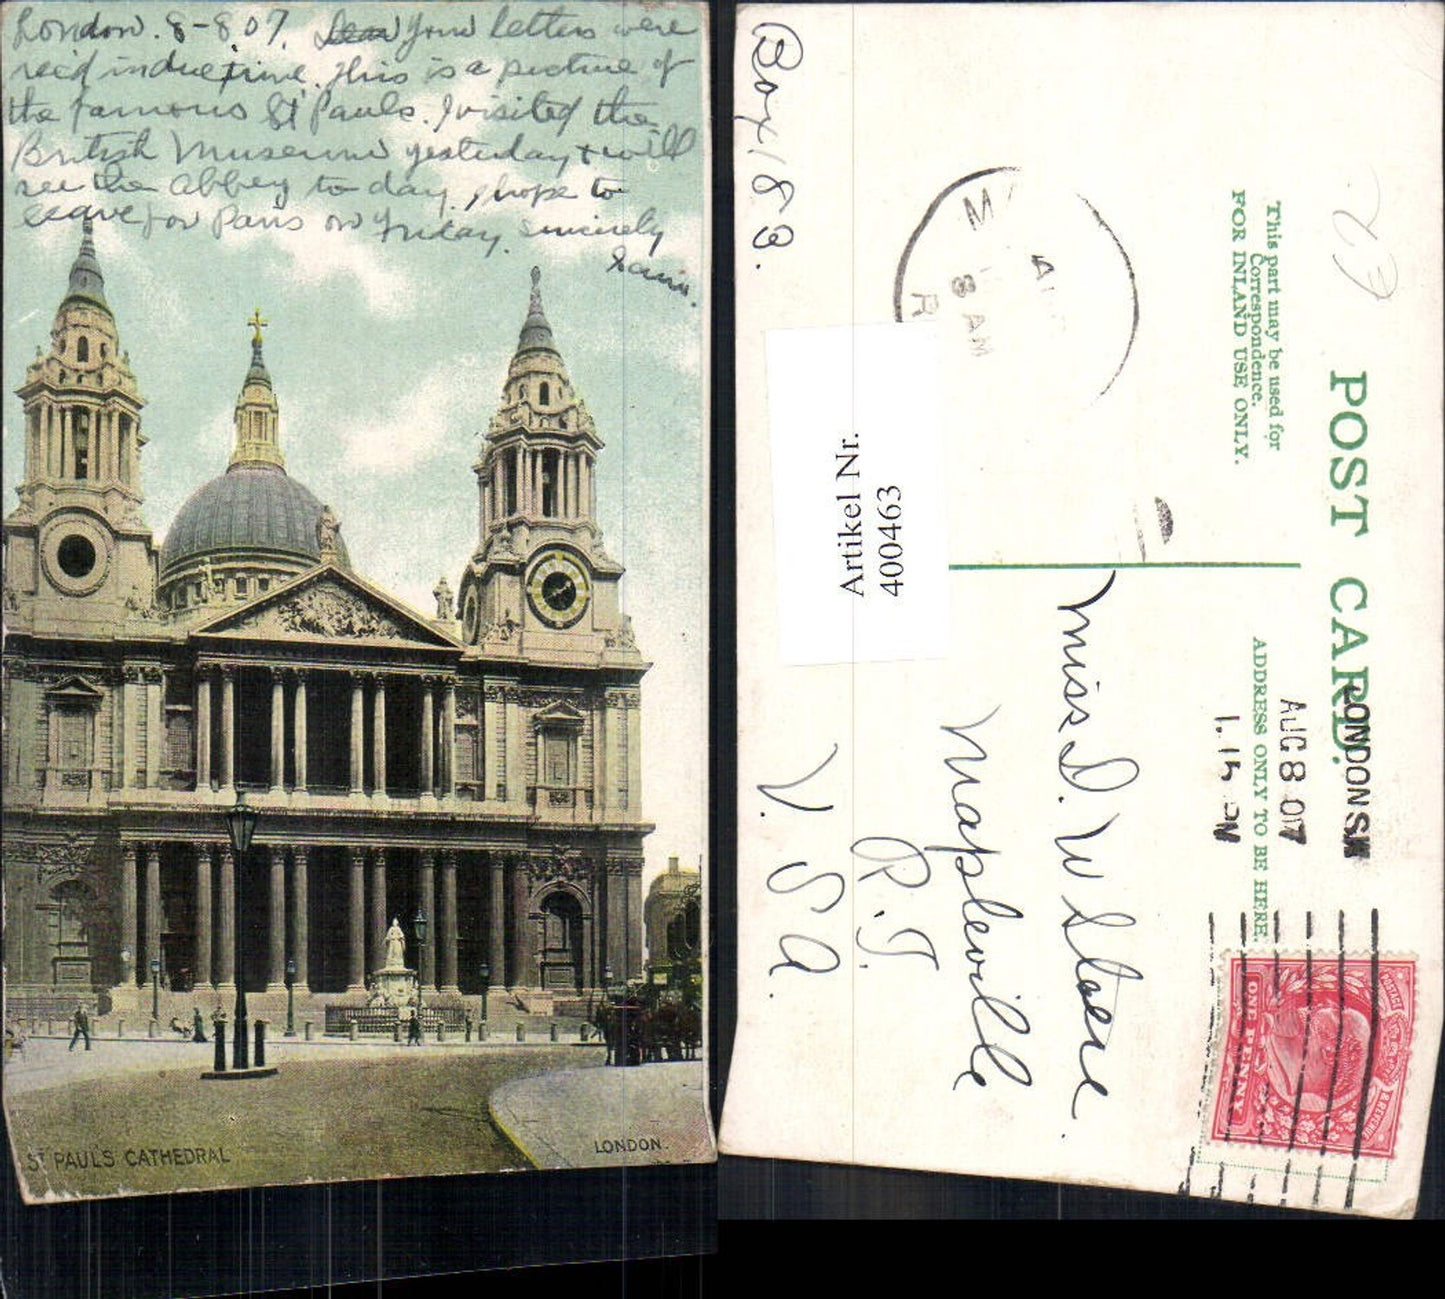 London. 8-8 07. Dear Your letters were
rec'd in due time. This is a picture of
the famous St Pauls. I visited the
British Museum yesterday + will
see the Abbey to day. I hope to
leave for Paris on Friday. Sincerely
ST PAULS CATHEDRAL
LONDON.
POST CARD.
This part may be used for
Correspondence.
FOR INLAND USE ONLY.
ADDRESS ONLY TO BE HERE.
LONDON S.W
AUG 8 07
1.15
8 AM
R
POSTAGE
& REVENUE
ONE PENNY
Miss D. W Slocum
Mapleville
R.I.
U. S. A.
Box 189.
Artikel Nr.
400463